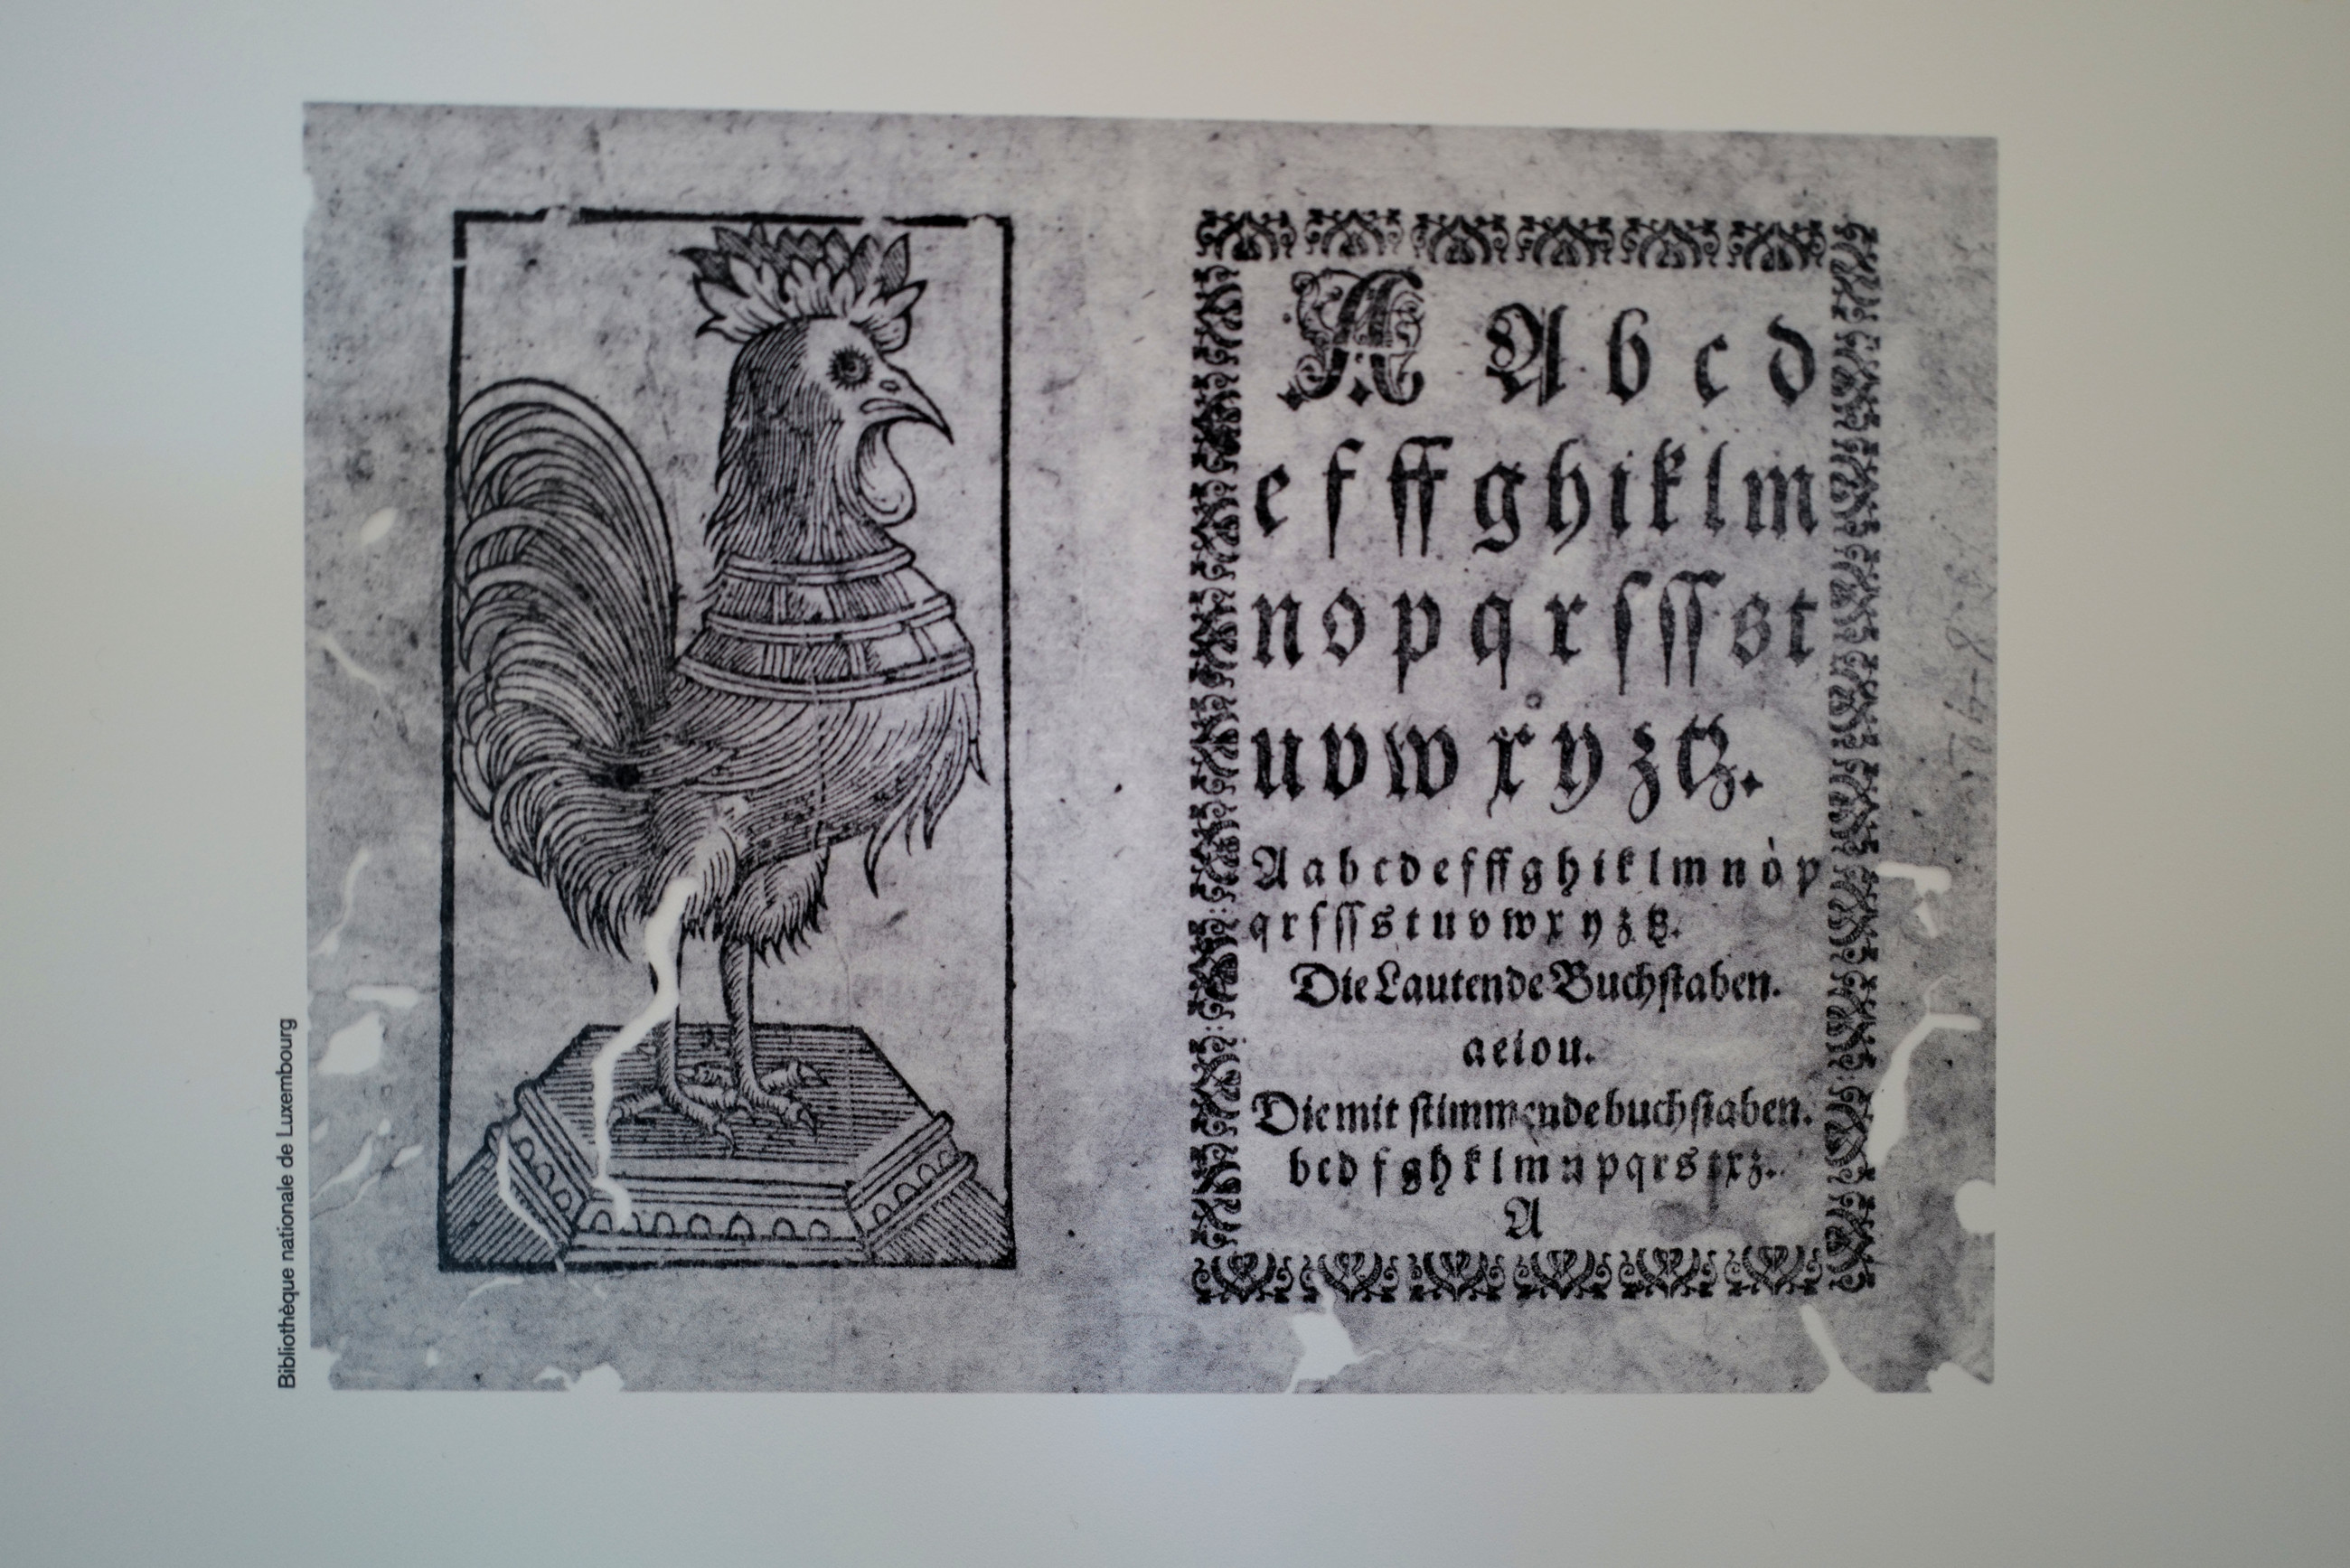 Bibliothèque nationale de Luxembourg
A A b c d
e f ff g h i k l m
n o p q r ſ ſſ s t
u v w x y z tz.
A a b c d e f ff g h i k l m n o p
q r ſ ſſ s t u v w x y z tz.
Die Lautende Buchſtaben.
a e i o u.
Die mit ſtimmende buchſtaben.
b c d f g h k l m n p q r s t x z.
A